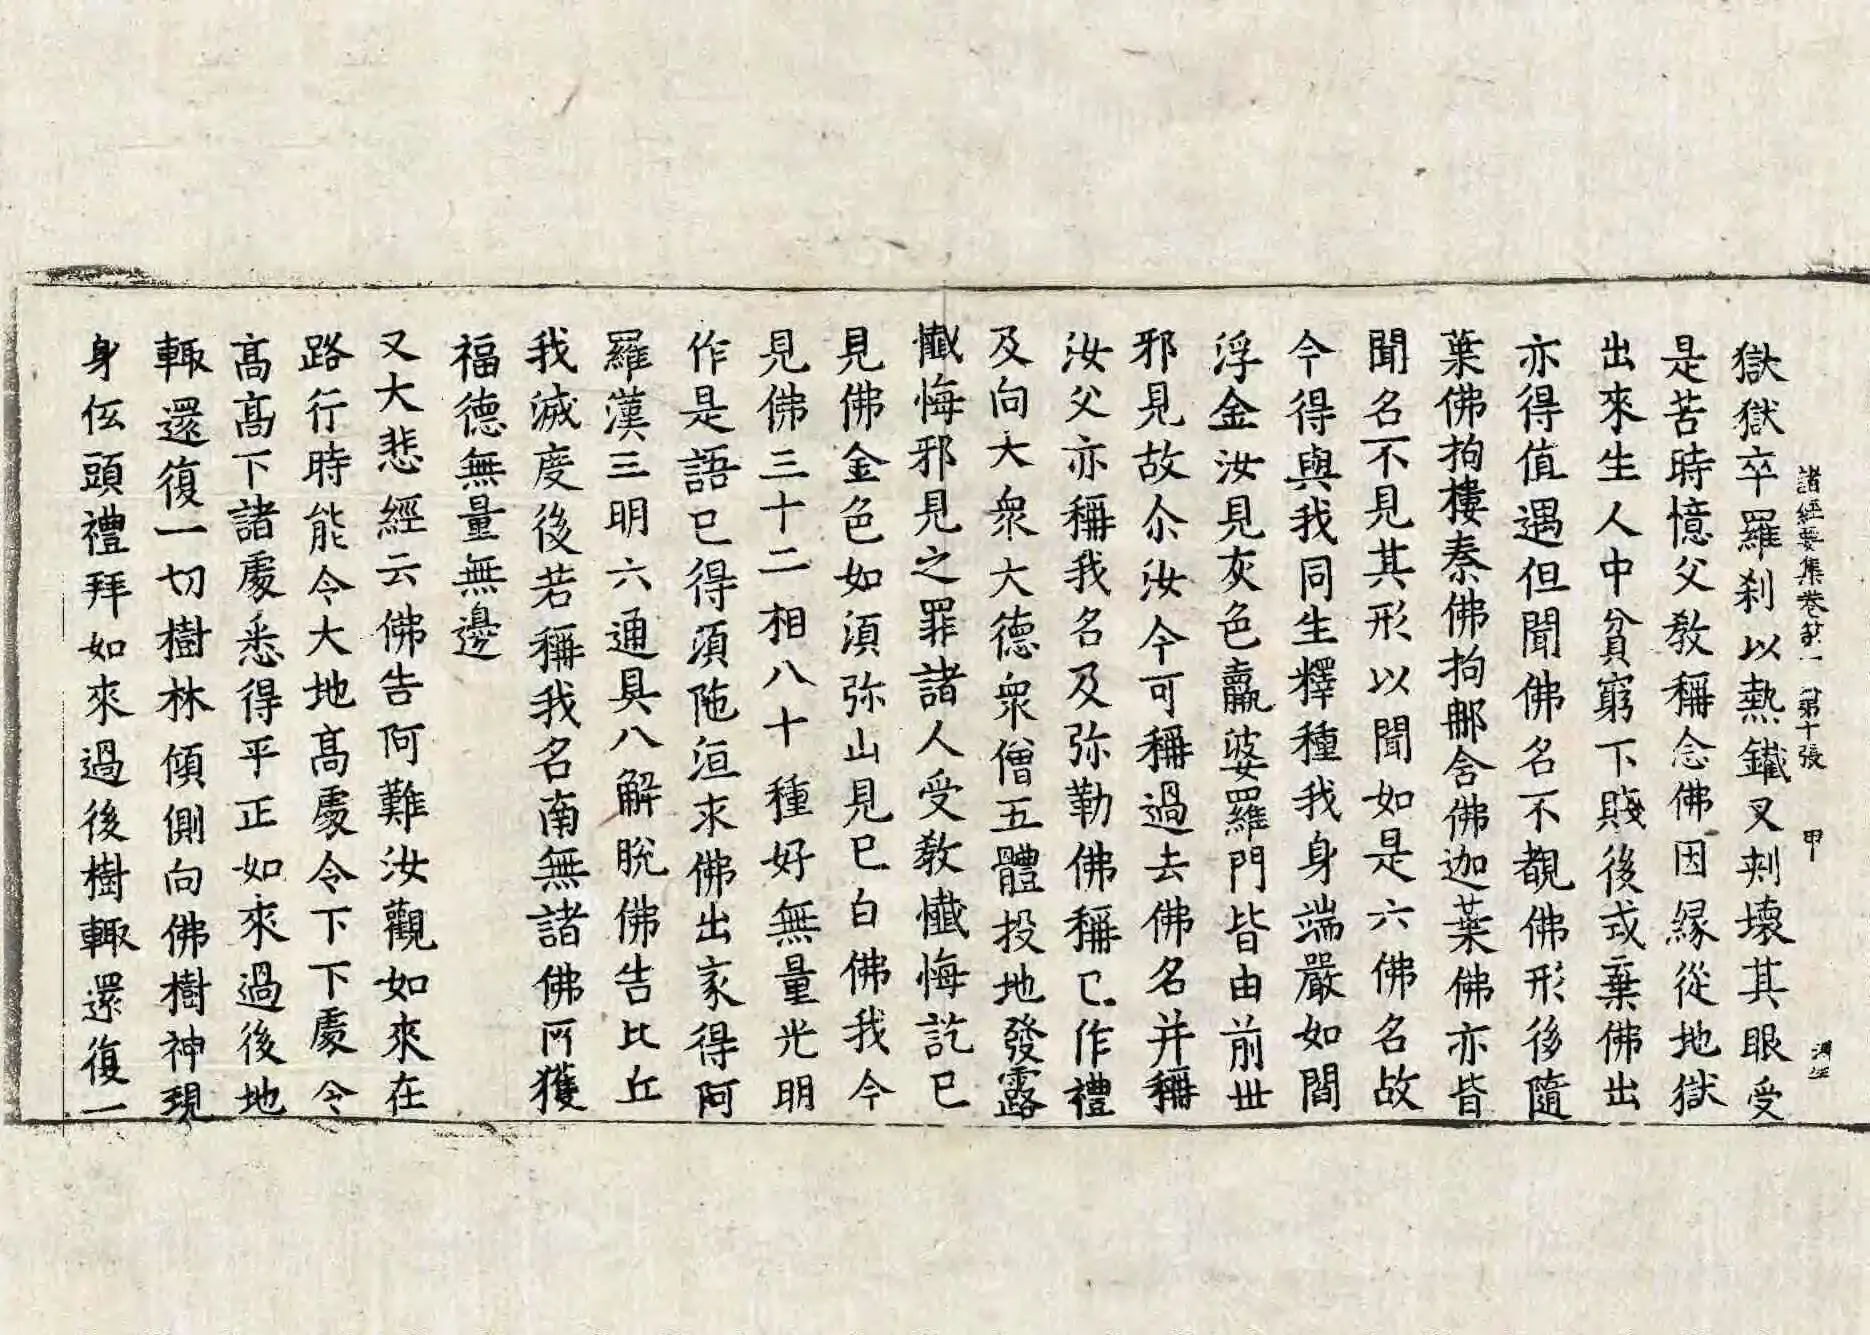 諸經要集卷苐一 苐十張 甲
獄獄卒羅刹以熱鐵叉刾壞其眼受
是苦時憶父教稱念佛因縁從地獄
出來生人中貧窮下賤後式棄佛出
亦得值遇但聞佛名不覩佛形後隨
葉佛拘樓秦佛拘那含佛迦葉佛亦皆
聞名不見其形以聞如是六佛名故
今得與我同生釋種我身端嚴如閻
浮金汝見灰色羸婆羅門皆由前世
邪見故尒汝今可稱過去佛名并稱
汝父亦稱我名及弥勒佛稱已作禮
及向大衆大德衆僧五體投地發露
懺悔邪見之罪諸人受教懺悔訖已
見佛金色如湏弥山見已白佛我今
見佛三十二相八十種好無量光明
作是語已得湏陁洹求佛出家得阿
羅漢三明六通具八解脫佛告比丘
我滅度後若稱我名南無諸佛所獲
福德無量無邊
又大悲經云佛告阿難汝觀如來在
路行時能令大地髙處令下下處令
髙髙下諸處悉得平正如來過後地
輙還復一切樹林傾側向佛樹神現
身伍頭禮拜如來過後樹輙還復一